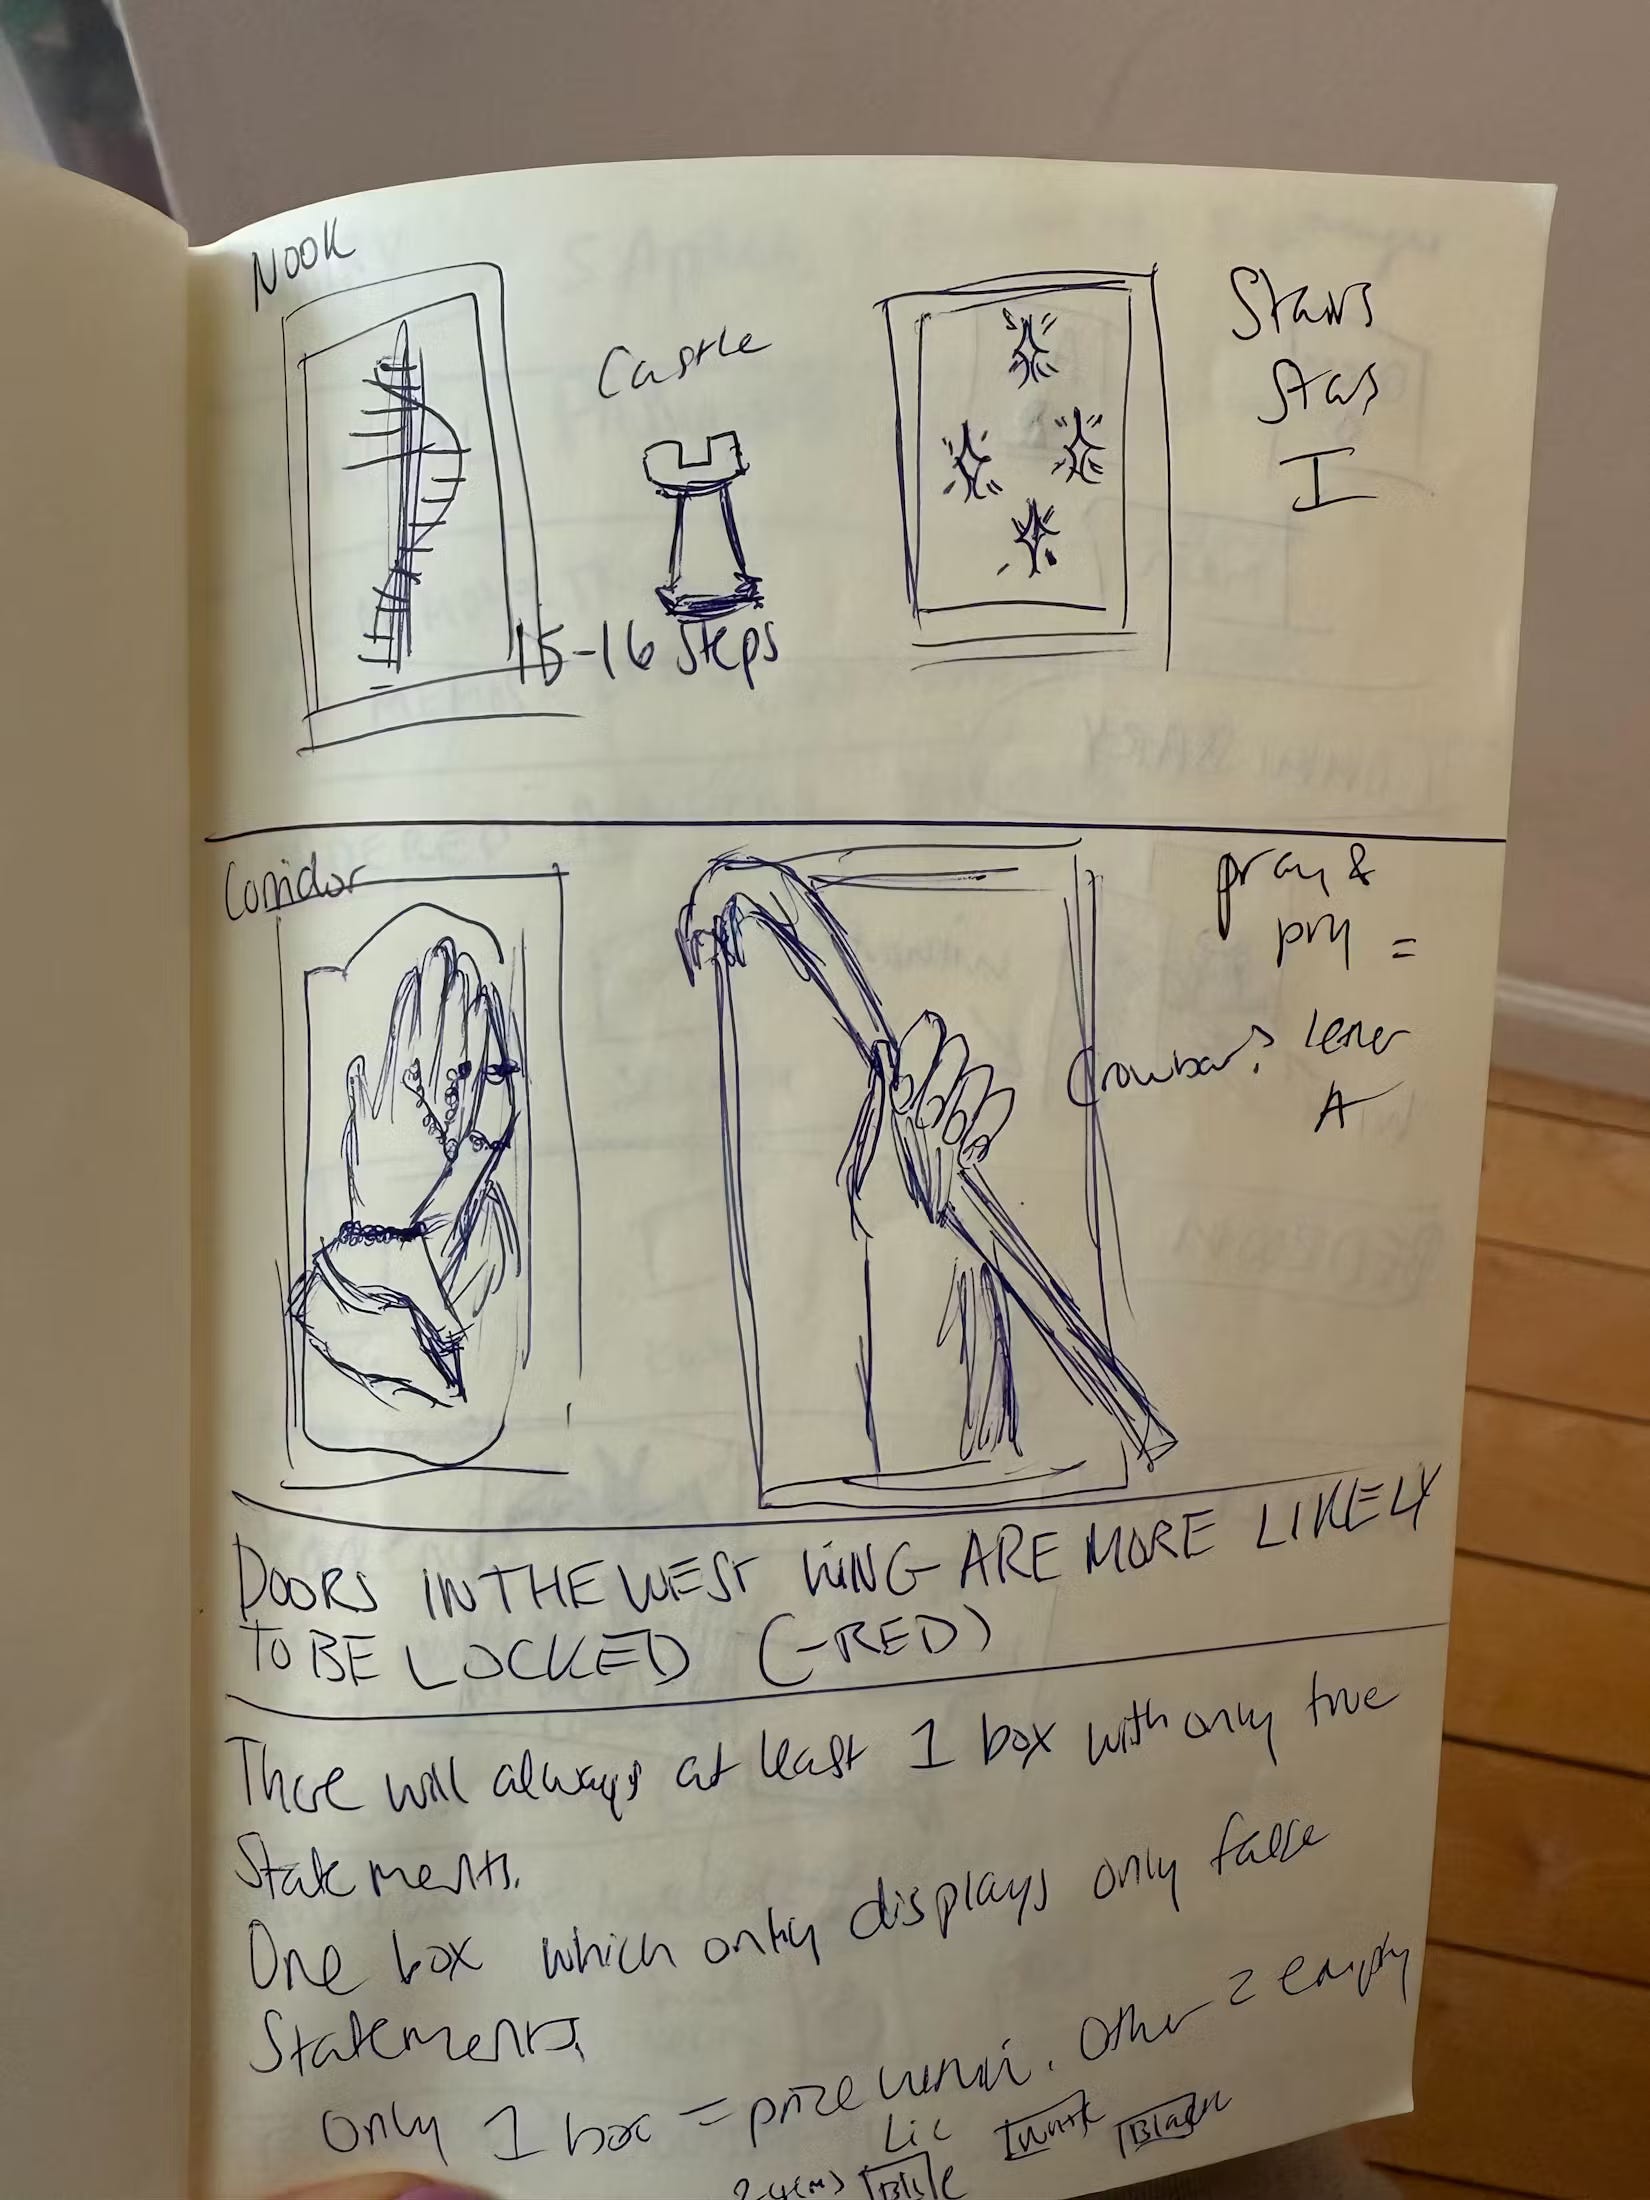 NOOK
Castle
15-16 Steps
Stairs
Stars
I
Corridor
pray &
pry =
Crowbar? letter
A
DOORS IN THE WEST WING ARE MORE LIKELY
TO BE LOCKED (-RED)
There will always at least 1 box with only true
Statements.
One box which only displays only false
Statements.
Only 1 box = prize. Other 2 empty